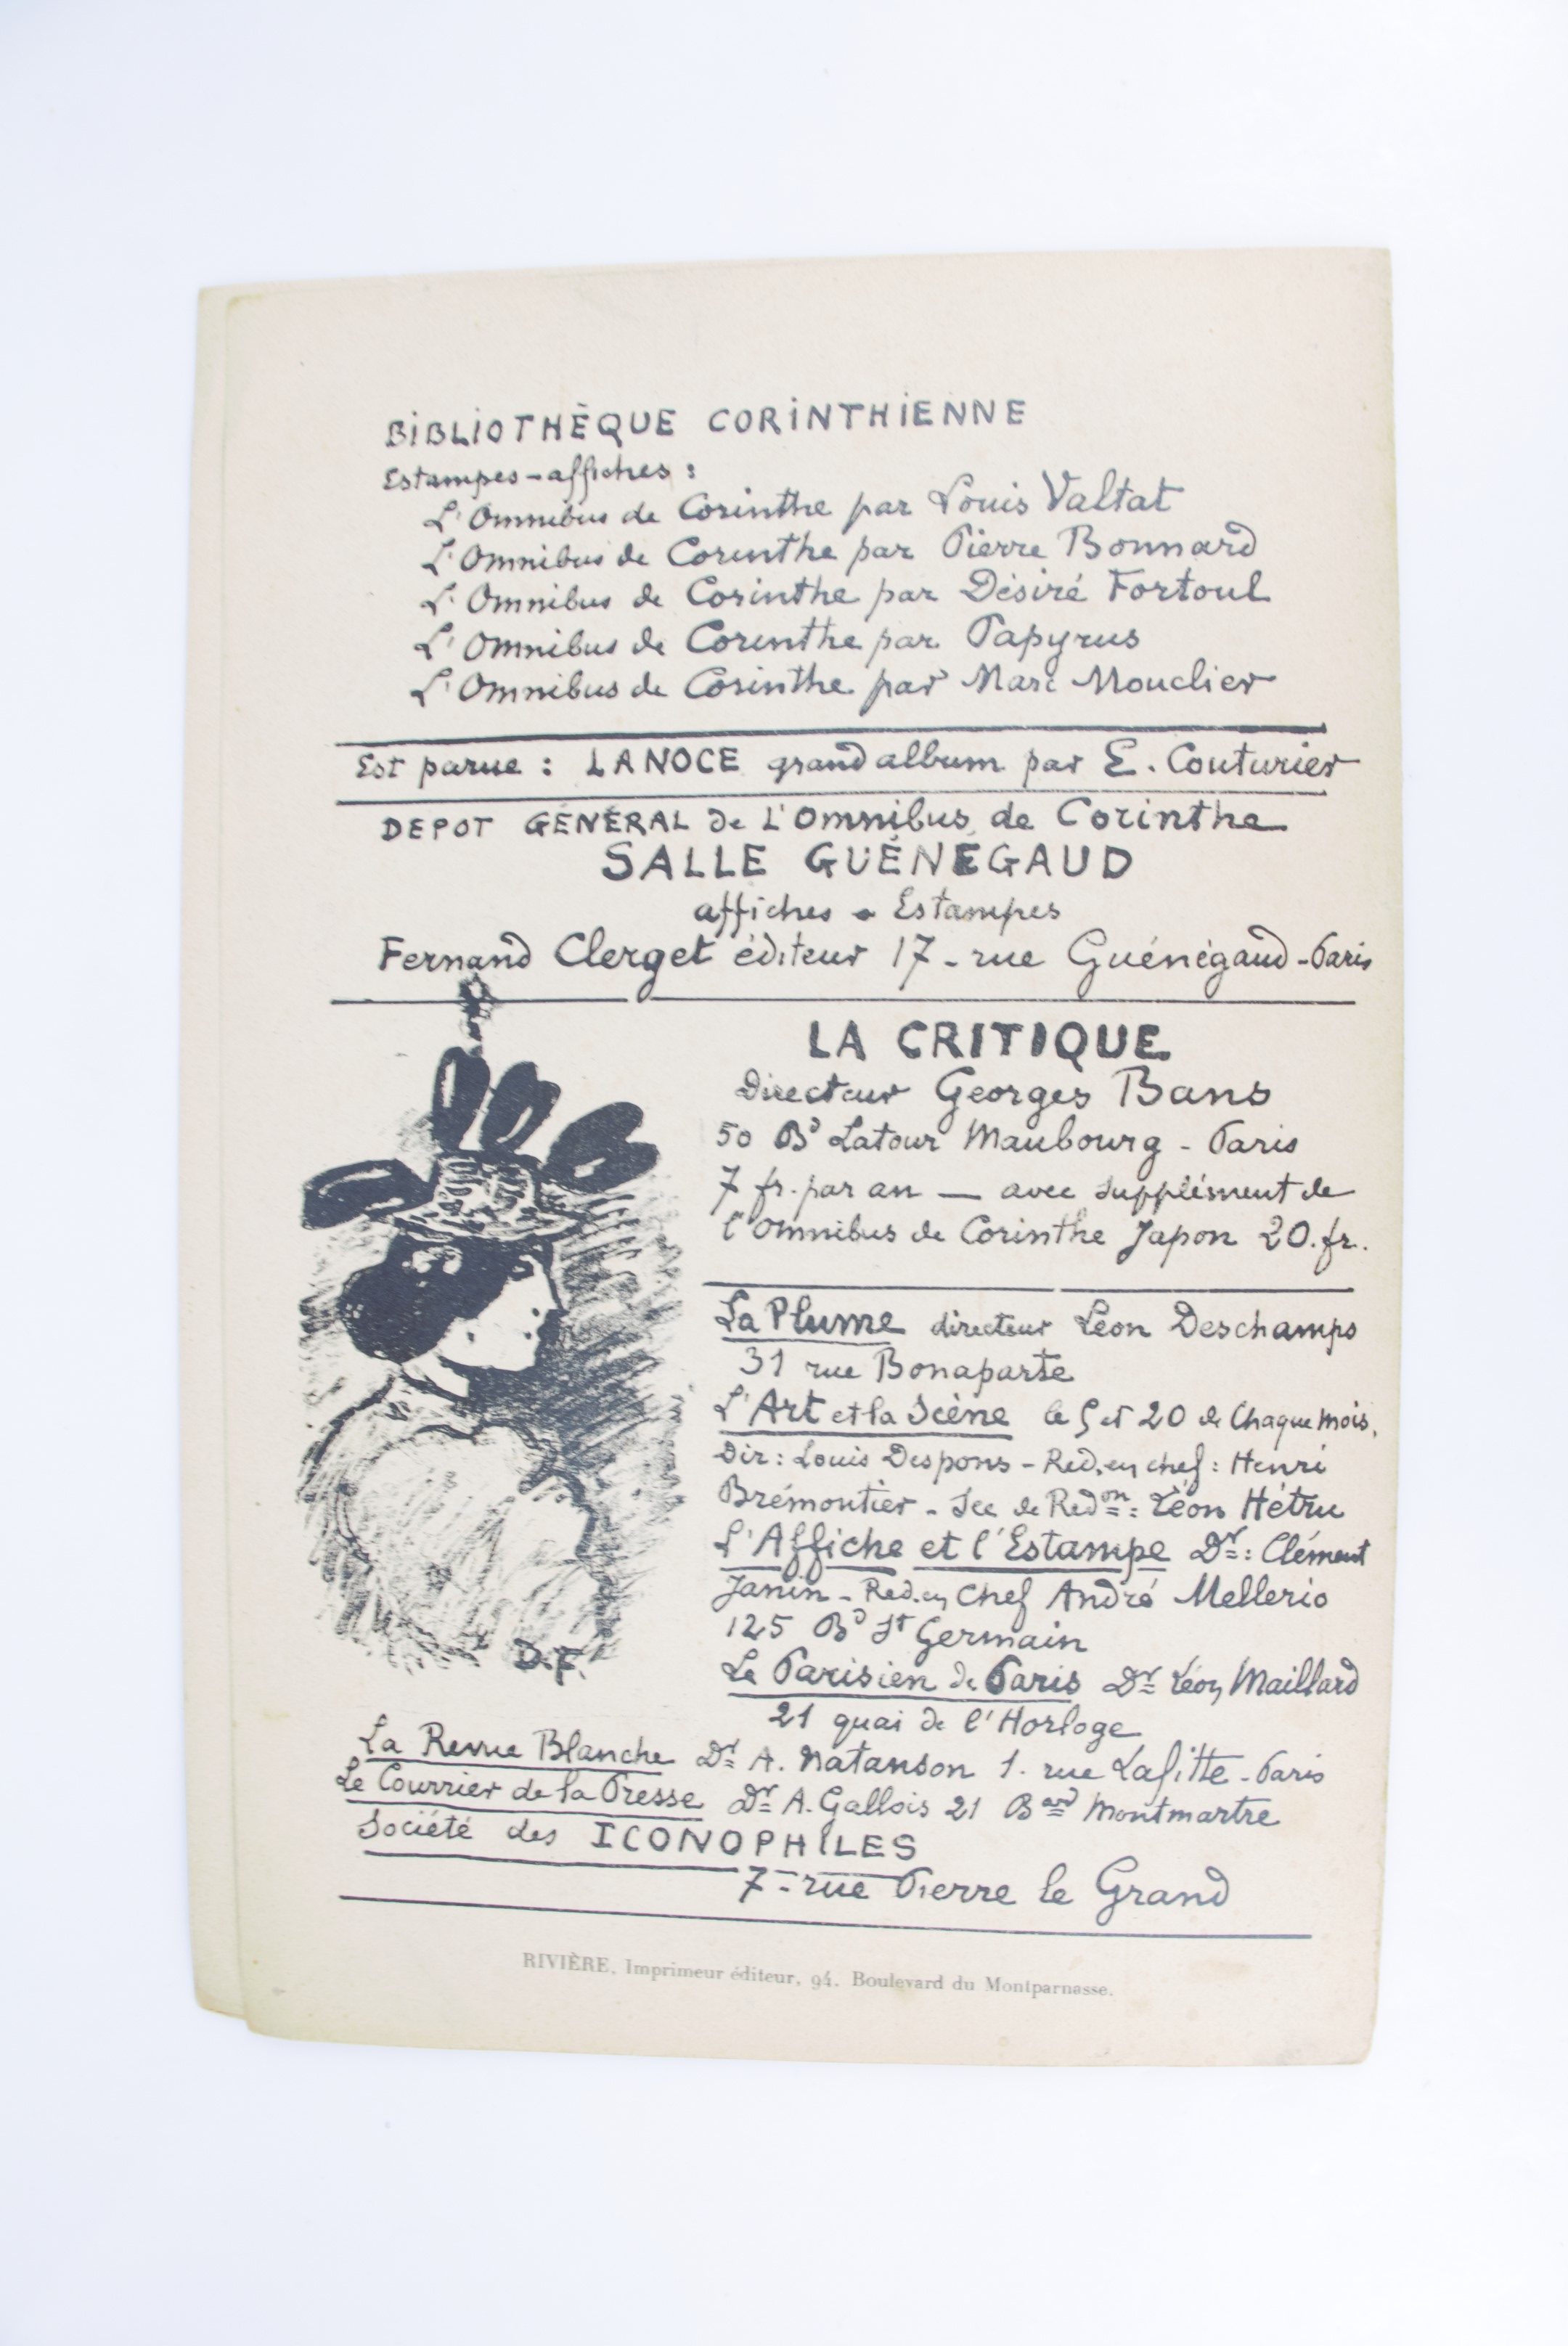 BIBLIOTHÈQUE CORINTHIENNE
Estampes-affiches :
L'Omnibus de Corinthe par Louis Valtat
L'Omnibus de Corinthe par Pierre Bonnard
L'Omnibus de Corinthe par Désiré Fortoul
L'Omnibus de Corinthe par Papyrus
L'Omnibus de Corinthe par Marc Mouclier
Est parue : LA NOCE grand album par E. Couturier
DEPOT GÉNÉRAL de L'Omnibus de Corinthe
SALLE GUÉNÉGAUD
affiches - Estampes
Fernand Clerget éditeur 17 - rue Guénégaud - Paris
LA CRITIQUE
Directeur Georges Bans
50 Bd Latour Maubourg - Paris
7 fr. par an — avec supplément de
l'Omnibus de Corinthe Japon 20. fr.
La Plume directeur Léon Deschamps
31 rue Bonaparte
L'Art et la Scène le 5 et 20 de Chaque mois.
Dir : Louis Despons - Red. en chef : Henri
Brémontier - Sec de Redon : Léon Hétru
L'Affiche et l'Estampe Dr : Clément
Janin - Red. en Chef André Mellerio
125 Bd St Germain
Le Parisien de Paris Dr Léon Maillard
21 quai de l'Horloge
D.F.
La Revue Blanche Dr A. Natanson 1. rue Lafitte - Paris
Le Courrier de la Presse Dr A. Gallois 21 Bard Montmartre
Société des ICONOPHILES
7 - rue Pierre le Grand
RIVIÈRE, Imprimeur éditeur, 94. Boulevard du Montparnasse.